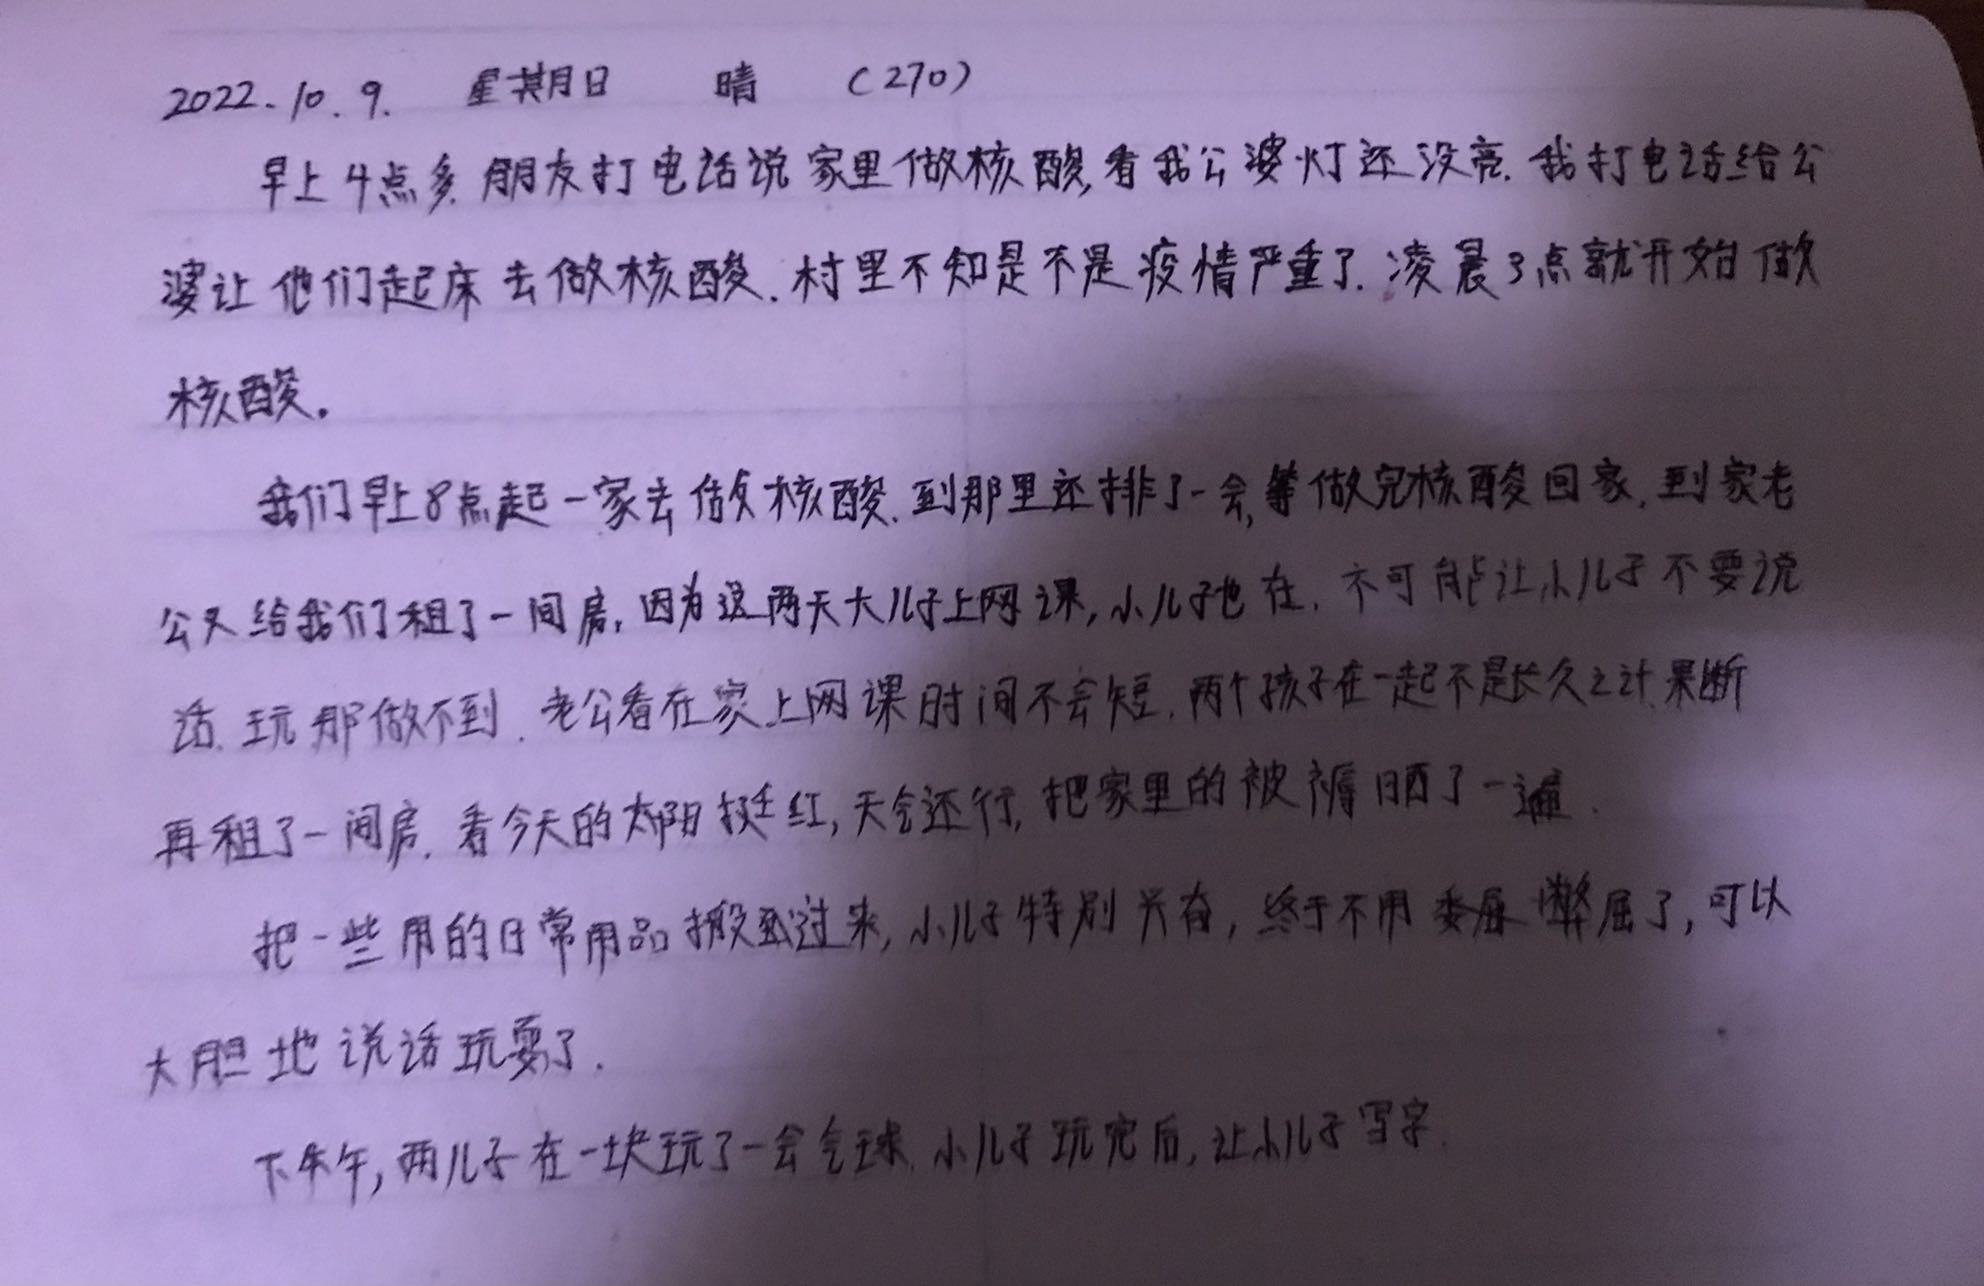 2022.10.9. 星期日 晴 (270)
早上4点多,朋友打电话说家里做核酸,看我公婆灯还没亮.我打电话给公
婆让他们起床去做核酸.村里不知是不是疫情严重了.凌晨3点就开始做
核酸。
我们早上8点起一家去做核酸.到那里还排了一会,等做完核酸回家,到家老
公又给我们租了一间房,因为这两天大儿子上网课,小儿子也在,不可能让小儿子不要说
话.玩那做不到.老公看在家上网课时间不会短,两个孩子在一起不是长久之计.果断
再租了一间房.看今天的太阳挺红,天气还行,把家里的被褥晒了一遍.
把一些用的日常用品搬过来,小儿子特别兴奋,终于不用憋屈了,可以
大胆地说话玩耍了.
下午,两儿子在一块玩了一会气球.小儿子玩完后,让小儿子写字.